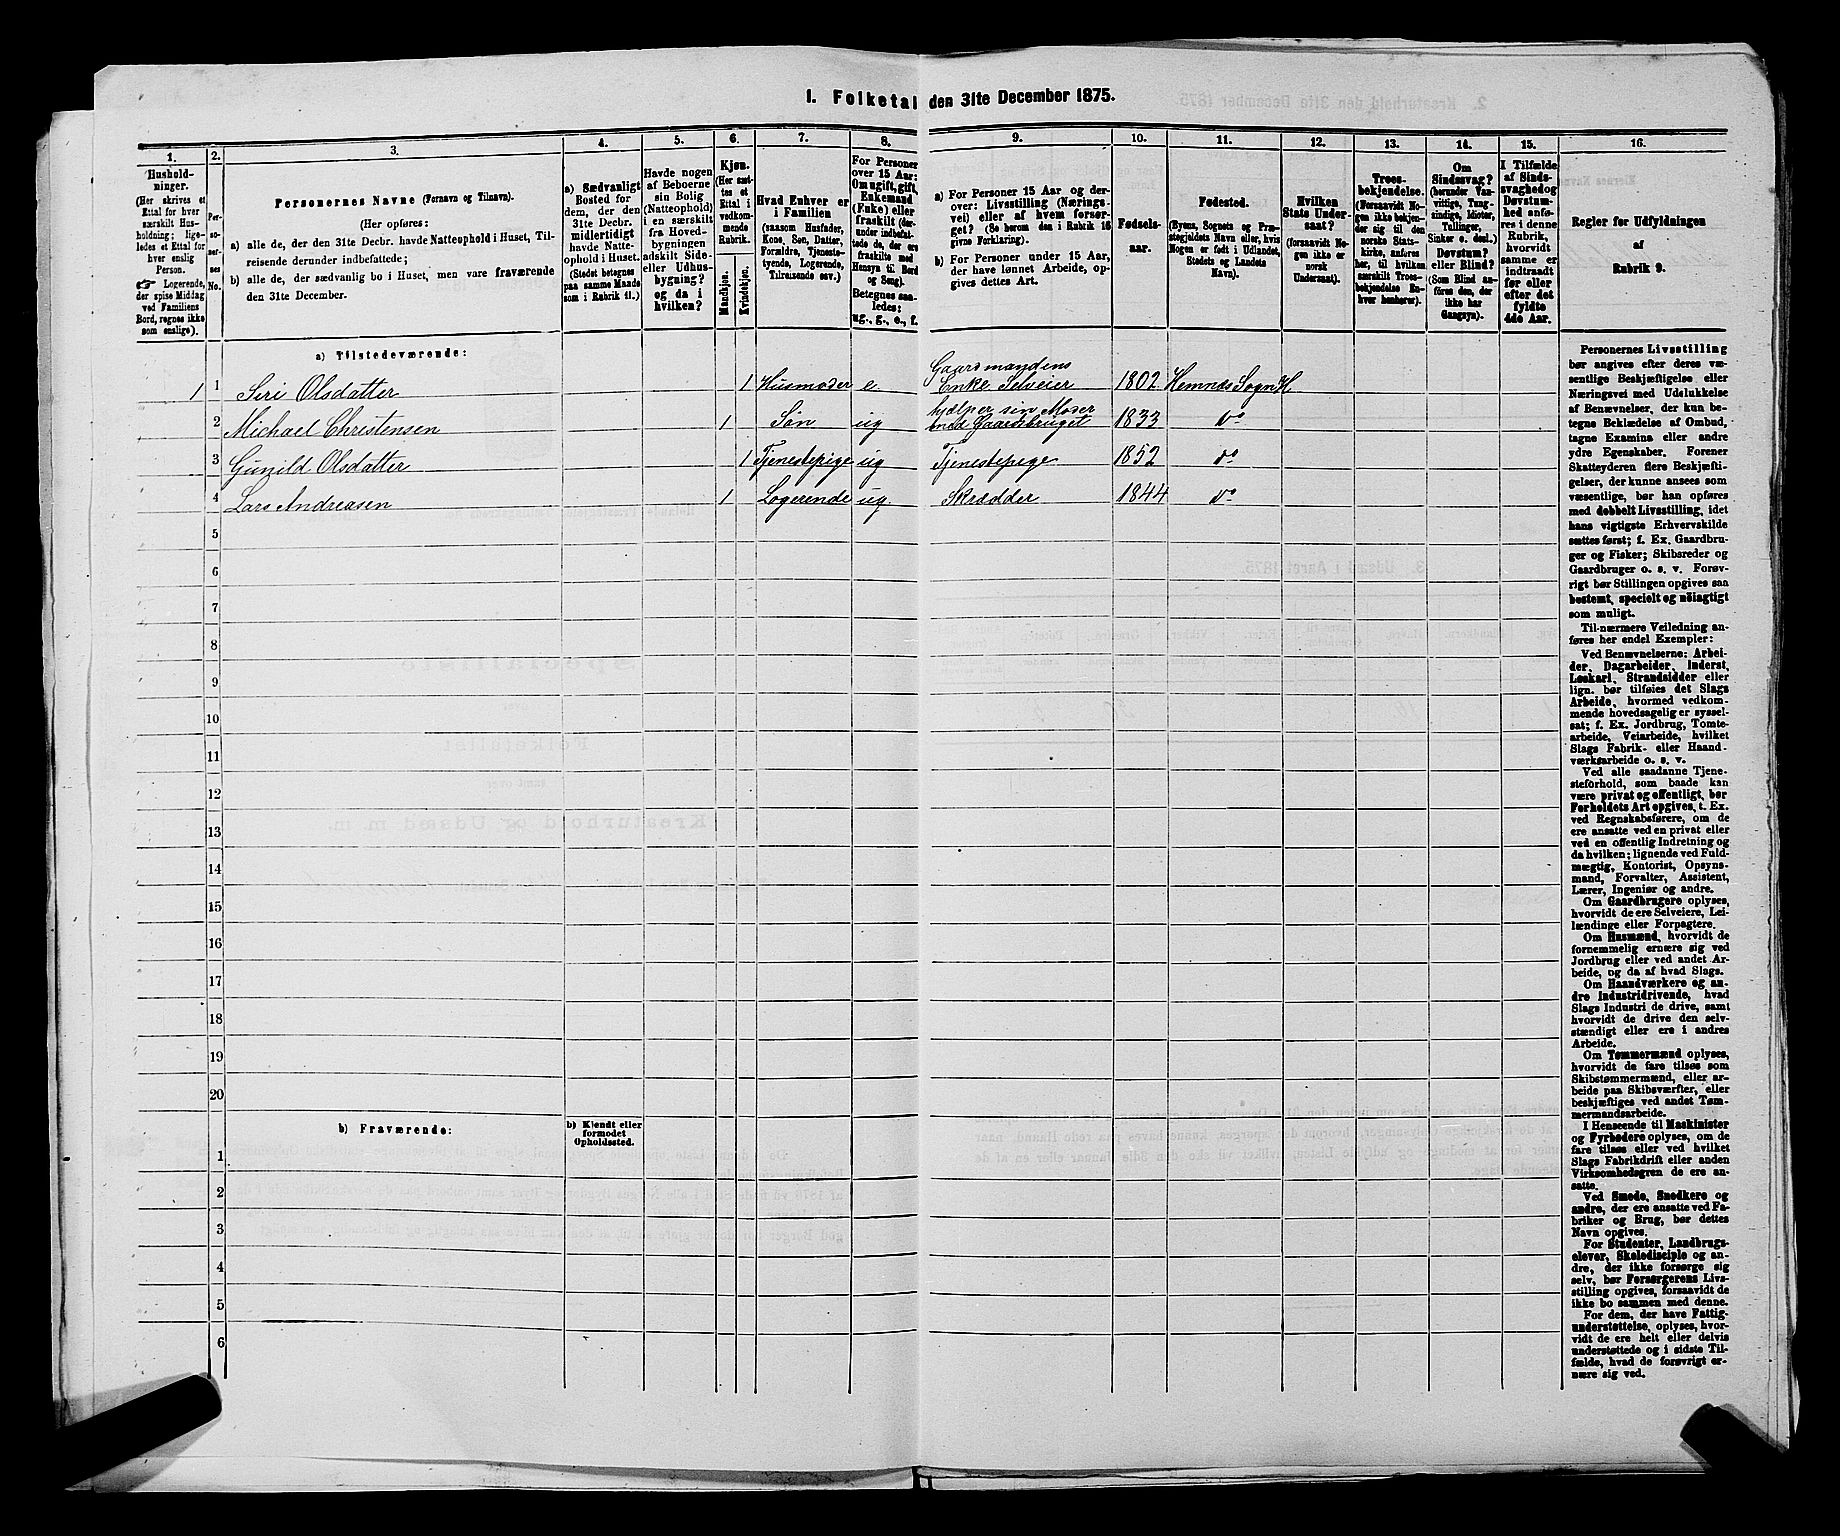 1. Folketal den 31te December 1875.
1.
Hushold-
ninger.
(Her skrives et
Ettal for hver
særskilt Hus-
holdning; lige-
ledes et Ettal for
hver enslig
Person.
☞ Logerende,
der spise Middag
ved Familiens
Bord, regnes ikke
som enslige).
2.
Per-
so-
ner-
nes
No.
3.
Personernes Navne (Fornavn og Tilnavn).
(Her opføres:
a) alle de, der den 31te Decbr. havde Natteophold i Huset, Til-
reisende derunder indbefattede;
b) alle de, der sædvanlig bo i Huset, men vare fraværende
den 31te December.
4.
a) Sædvanligt
Bosted for
dem, der den
31te Decbr.
midlertidigt
havde Natte-
ophold i Huset.
(Stedet betegnes
paa samme Maade
som i Rubrik 11.)
5.
Havde nogen
af Beboerne
sin Bolig
(Natteophold)
i en særskilt
fra Hoved-
bygningen
adskilt Side-
eller Udhus-
bygning?
og da i
hvilken?
6.
Kjøn.
(Her sæt-
tes et
Ettal i
vedkom-
mende
Rubrik.
Mandkjøn.
Kvindekjøn.
7.
Hvad Enhver er
i Familien
(saasom Husfader,
Kone, Søn, Datter,
Forældre, Tjeneste-
tyende, Logerende,
Tilreisende osv.)
8.
For Personer
over 15 Aar:
Om ugift, gift,
Enkemand
(Enke) eller
fraskilt (der-
under indbefat-
tede de, der ere
fraskilte med
Hensyn til Bord
og Seng).
Betegnes saa-
ledes:
ug., g., e., f.
9.
a) For Personer 15 Aar og der-
over: Livsstilling (Nærings-
vei) eller af hvem forsør-
get? (Se herom den i Rubrik 16
givne Forklaring).
b) For Personer under 15 Aar,
der have lønnet Arbeide, op-
gives dettes Art.
10.
Fødsels-
aar.
11.
Fødested.
(Byens, Sognets og Præste-
gjeldets Navn eller, hvis
Nogen er født i Udlandet,
Stedets og Landets
Navn).
12.
Hvilken
Stats Under-
saat?
(forsaavidt No-
gen ikke er
norsk
Undersaat).
13.
Troes-
bekjendelse.
(Forsaavidt No-
gen ikke bekjen-
der sig til den
norske Stats-
kirke, anføres
her, til hvilken
særskilt Troes-
bekjendelse En-
hver henhører).
14.
Om
Sindssvag?
(herunder Van-
vittige, Tung-
sindige, Idioter,
Tullinger,
Sinker o. desl.)
Døvstum?
eller Blind?
(Som Blind an-
føres den, der
ikke har
Gangsyn).
15.
I Tilfælde
af Sinds-
svaghed og
Døvstum-
hed anfø-
res i denne
Rubrik,
hvorvidt
samme er
indtraadt
før eller
efter det
fyldte
4de Aar.
16.
Regler for Udfyldningen
af
Rubrik 9.
a) Tilstedeværende:
1 1 Siri Olsdatter 1 Husmoder e. Gaardmandens
Enke Selveier 1802 Hemnæs Sogn H
2 Michael Christensen 1 Søn ug hjælper sin Moder
med Gaardsbruget 1833 do
3 Gunild Olsdatter 1 Tjenestepige ug Tjenestepige 1852 do
4 Lars Andreasen 1 Logerende ug. Skrædder 1844 do
5
6
7
8
9
10
11
12
13
14
15
16
17
18
19
20
b) Fraværende:
b) Kjendt eller
formodet
Opholdssted.
1
2
3
4
5
6
Personernes Livsstilling
bør angives efter deres væ-
sentlige Beskjæftigelse eller
Næringsvei med Udelukkelse
af Benævnelser, der kun be-
tegne Beklædelse af Ombud,
tagne Examina eller andre
ydre Egenskaber. Forener
Skatteyderen flere Beskjæfti-
gelser, der kunne ansees som
væsentlige, bør han opføres
med dobbelt Livsstilling, idet
hans vigtigste Erhvervskilde
sættes først; f. Ex. Gaardbru-
ger og Fisker; Skibsreder og
Gaardbruger o. s. v. Forøv-
rigt bør Stillingen opgives saa
bestemt, specielt og nöiagtigt
som muligt.
Til nærmere Veiledning an-
føres her endel Exempler:
Ved Benævnelserne: Arbei-
der, Dagarbeider, Inderst,
Løskarl, Strandsidder eller
lign. bør tilføies det Slags
Arbeide, hvormed vedkom-
mende hovedsagelig er syssel-
sat; f. Ex. Jordbrug, Tomte-
arbeide, Veiarbeide, hvilket
Slags Fabrik- eller Haand-
værksarbeide o. s. v.
Ved alle saadanne Tjene-
steforhold, som baade kan
være privat og offentligt, bør
Forholdets Art opgives, t. Ex.
ved Regnskabsførere, om de
ere ansatte ved en privat eller
ved en offentlig Indretning og
da hvilken; lignende ved Fuld-
mægtig, Kontorist, Opsyns-
mand, Forvalter, Assistent,
Lærer, Ingeniør og andre.
Om Gaardbrugere oplyses,
hvorvidt de ere Selveiere, Lei-
lændinge eller Forpagtere.
Om Husmænd, hvorvidt de
fornemmelig ernære sig ved
Jordbrug eller ved andet Ar-
beide, og da af hvad Slags.
Om Haandværkere og an-
dre Industridrivende, hvad
Slags Industri de drive, samt
hvorvidt de drive den selv-
stændigt eller ere i andres
Arbeide.
Om Tømmermænd oplyses,
hvorvidt de fare tilsøs som
Skibstømmermænd, eller ar-
beide paa Skibsværfter, eller
beskjæftiges ved andet Tøm-
mermandsarbeide.
I Henseende til Maskinister
og Fyrbødere oplyses, om de
fare tilsøs eller ved hvilket
Slags Fabrikdrift eller anden
Virksomhedsgren de ere an-
satte.
Ved Smede, Snedkere og
andre, der ere ansatte ved Fa-
briker og Brug, bør dettes
Navn opgives.
For Studenter, Landbrugs-
elever, Skoledisciple og an-
dre, der ikke forsørge sig
selv, bør Forsørgerens Livs-
stilling opgives, forsaavidt de
ikke bo sammen med denne.
For dem, der have Fattig-
understøttelse, oplyses, hvor-
vidt de ere helt eller delvis
understøttede og i sidste Til-
fælde, hvad de forøvrigt er-
nære sig ved.